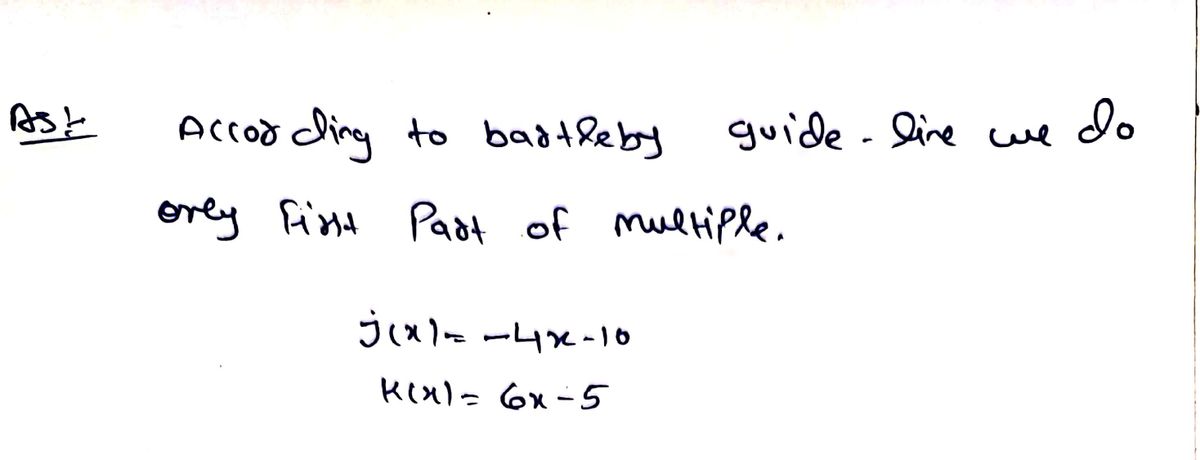 Ans:
According to bartleby guide-line we do
only first Part of multiple.
j(x)= -4x-10
K(x)= 6x-5